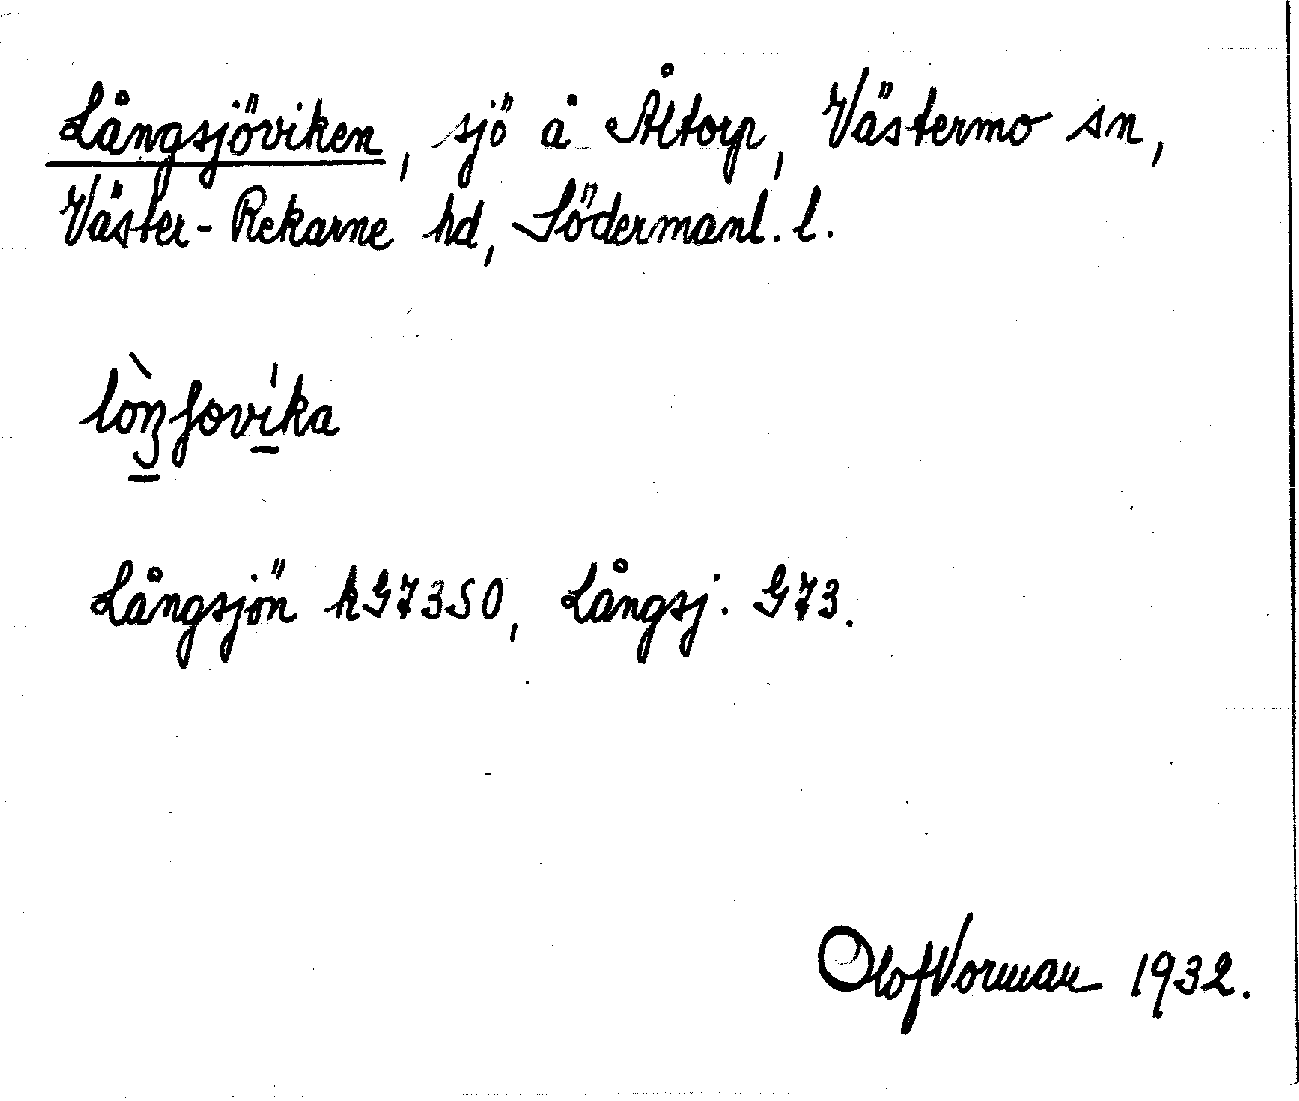 Långsjöviken, sjö å Åltorp, Västermo sn,
Väster-Rekarne hd, Södermanl. l.
lòŋʃøvika
Långsjön kG7350, Långsj. G73.
Olof Vorman 1932.